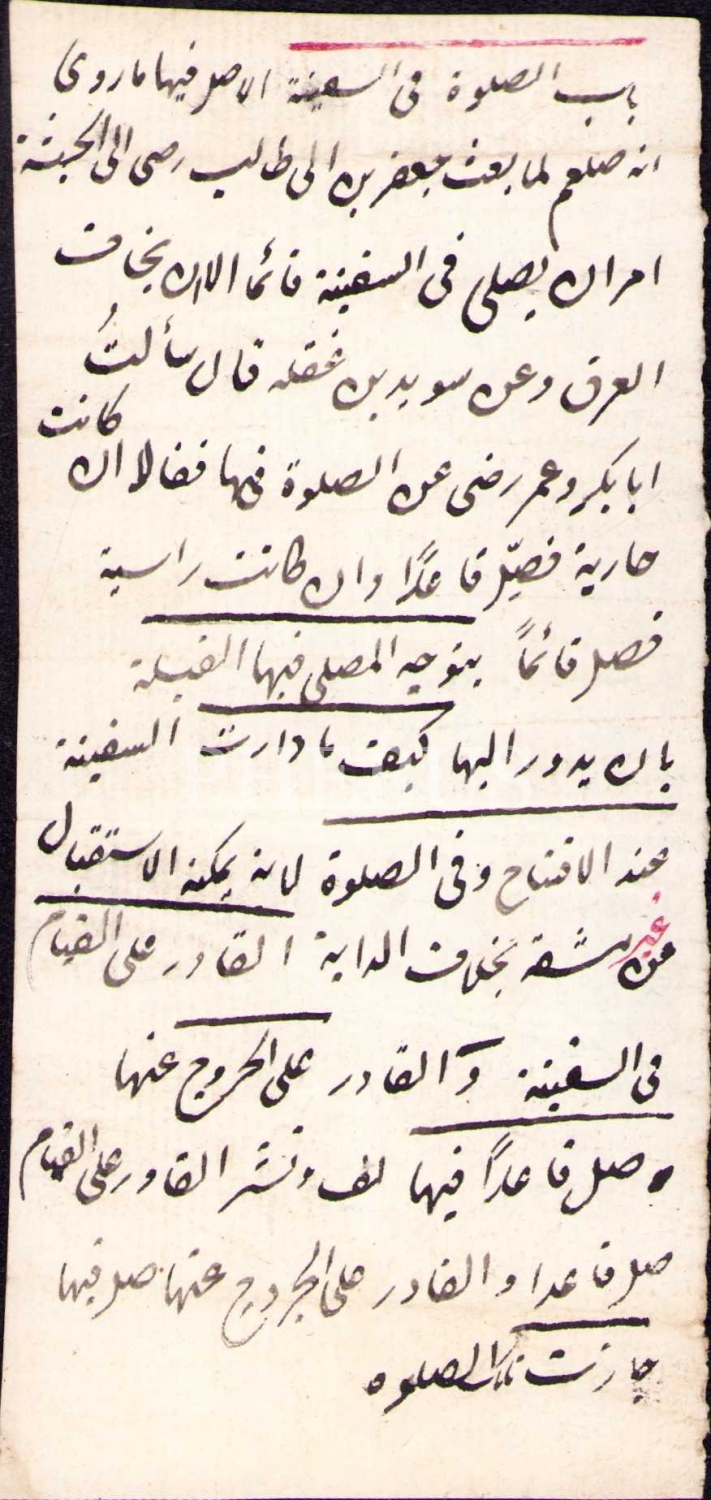 باب الصلوة فى السفينة الاصل فيها ما روى
انه صلعم لما بعث جعفر بن ابى طالب رضى الى الحبشة
امر ان يصلى فى السفينة قائما الا ان يخاف
الغرق وعن سويد بن غفله قال سألتُ
ابا بكر وعمر رضى عن الصلوة فيها فقالا ان كانت
جارية فصلّ قاعدًا وان كانت راسية
فصل قائماً يتوجه المصلى فيها القبلة
بان يدور اليها كيف ما دارت السفينة
عند الافتتاح وفى الصلوة لانه يمكنه الاستقبال
من غير مشقة بخلاف الدابة القادر على القيام
فى السفينة والقادر على الخروج عنها
صلى قاعداً فيها لف ونشر القادر على القيام
صلى قاعدا والقادر على الخروج عنها صلى فيها
جازت تلك الصلوه